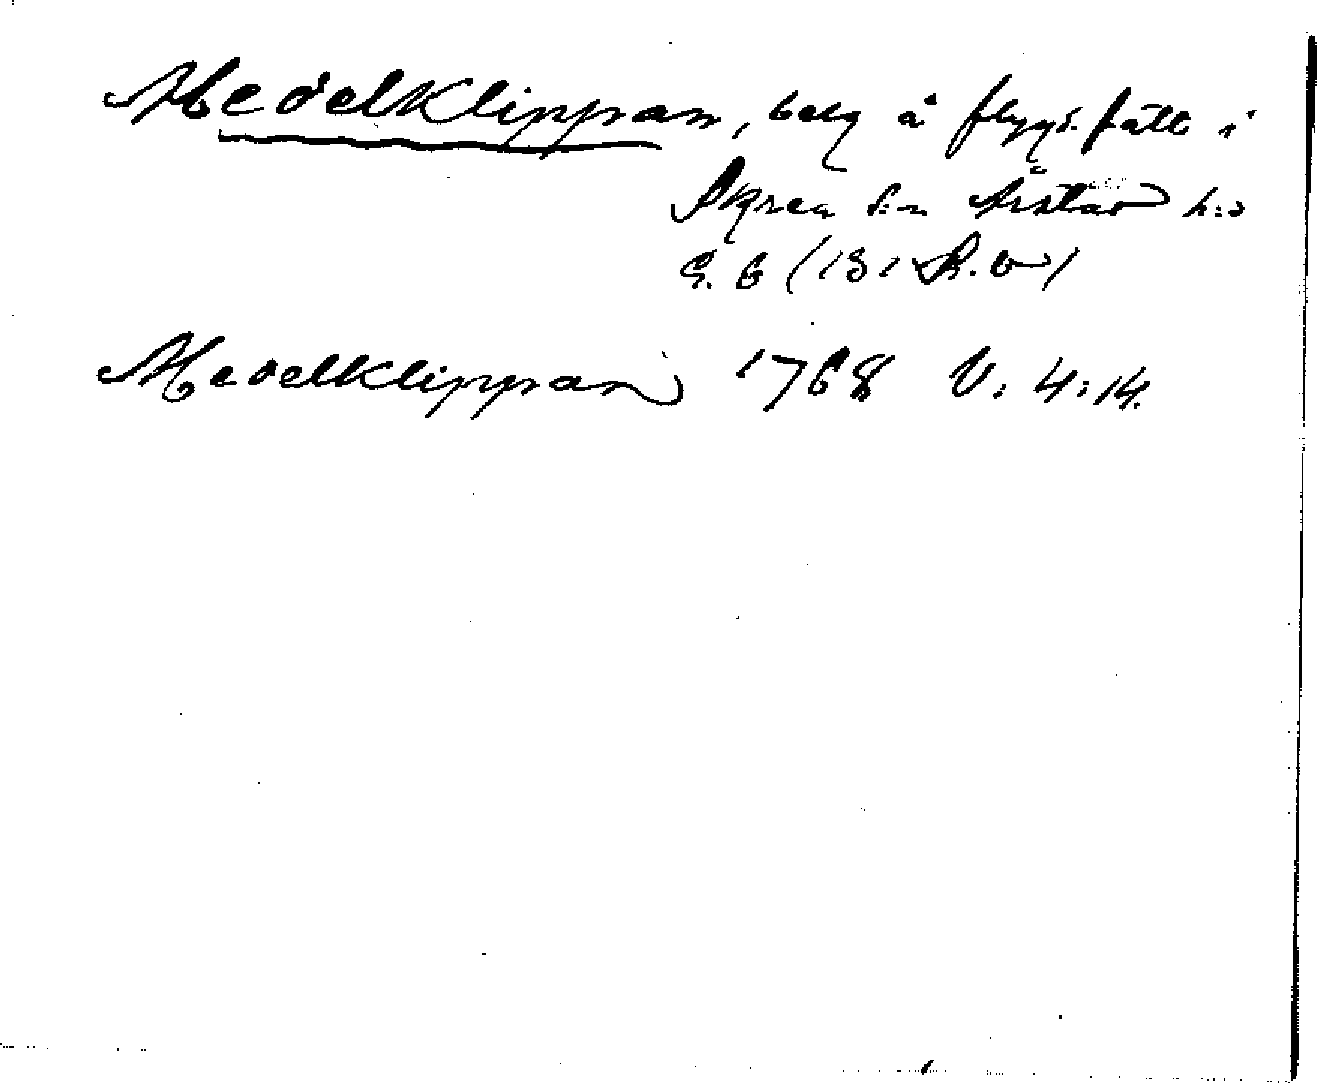 Medelklippan, belg å flygs. fält i
Skrea s:n Årstad h:d
G. 6 (131 R. b)
Medelklippan 1768 V: 4:14.